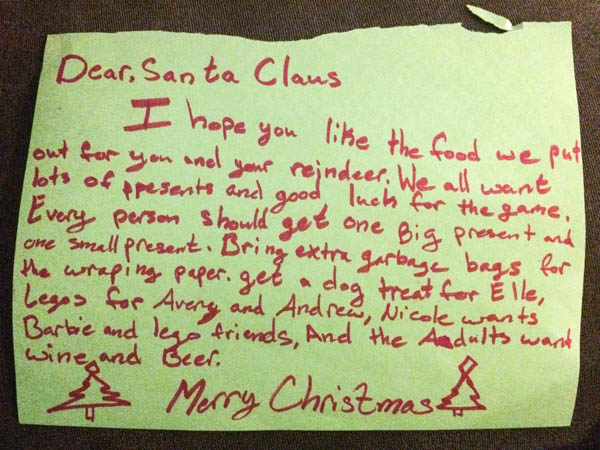 Dear, Santa Claus
I hope you like the food we put
out for you and your reijndeer. We all want
lots of ppesents and good luck for the game.
Every person should get one Big present and
one small present. Bring extra garbage bags for
the wraping paper. get a dog treat for Elle,
Legos for Avery and Andrew, Nicole wants
Barbie and lego friends, And the Aadults want
wine and Beer.
Merry Christmas